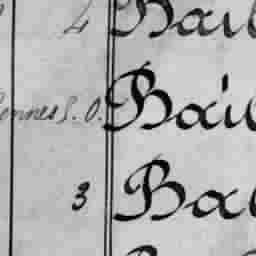 4 Bail
Rennes S. O. Bail
3 Bal